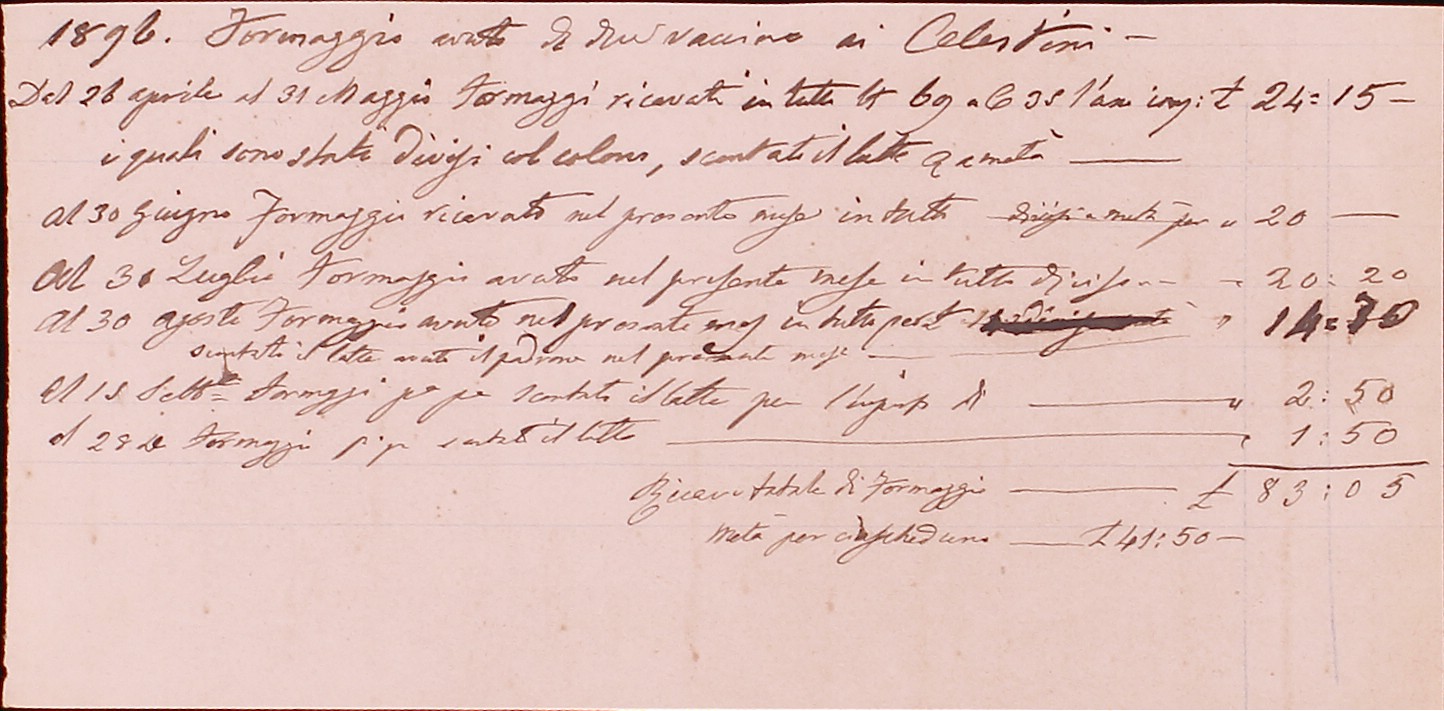 1896. Formaggio avuto di due vaccine ai Celestini —
Dal 26 aprile al 31 Maggio Formaggi ricavati in tutto 69 a C 35 l'uno £ 24=15—
i quali sono stati divisi col colono, scontati il latte a metà ——
Al 30 Giugno Formaggio ricavato nel presente mese in tutto divisi a metà per " 20 —
Al 30 Luglio Formaggio avuto nel presente mese in tutto diviso - - " 20: 20
Al 30 agosto Formaggio avuto nel presente mese in tutto per £ " 14=70
scontato il latte avuto il padrone nel presente mese —
Al 15 Sette Formaggi scontato il latte per di —— " 2: 50
al 28 Formaggi scontato il latte —— " 1: 50
Ricavo totale di Formaggio —— £ 83:05
Metà per ciascheduno —— £ 41:50—